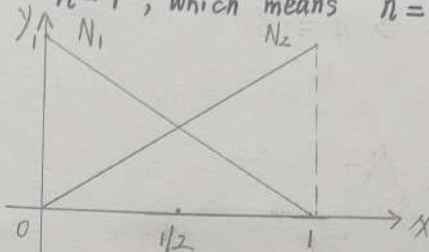 n=1, which means n=
y
1 N1 N2
0 1/2 1 x